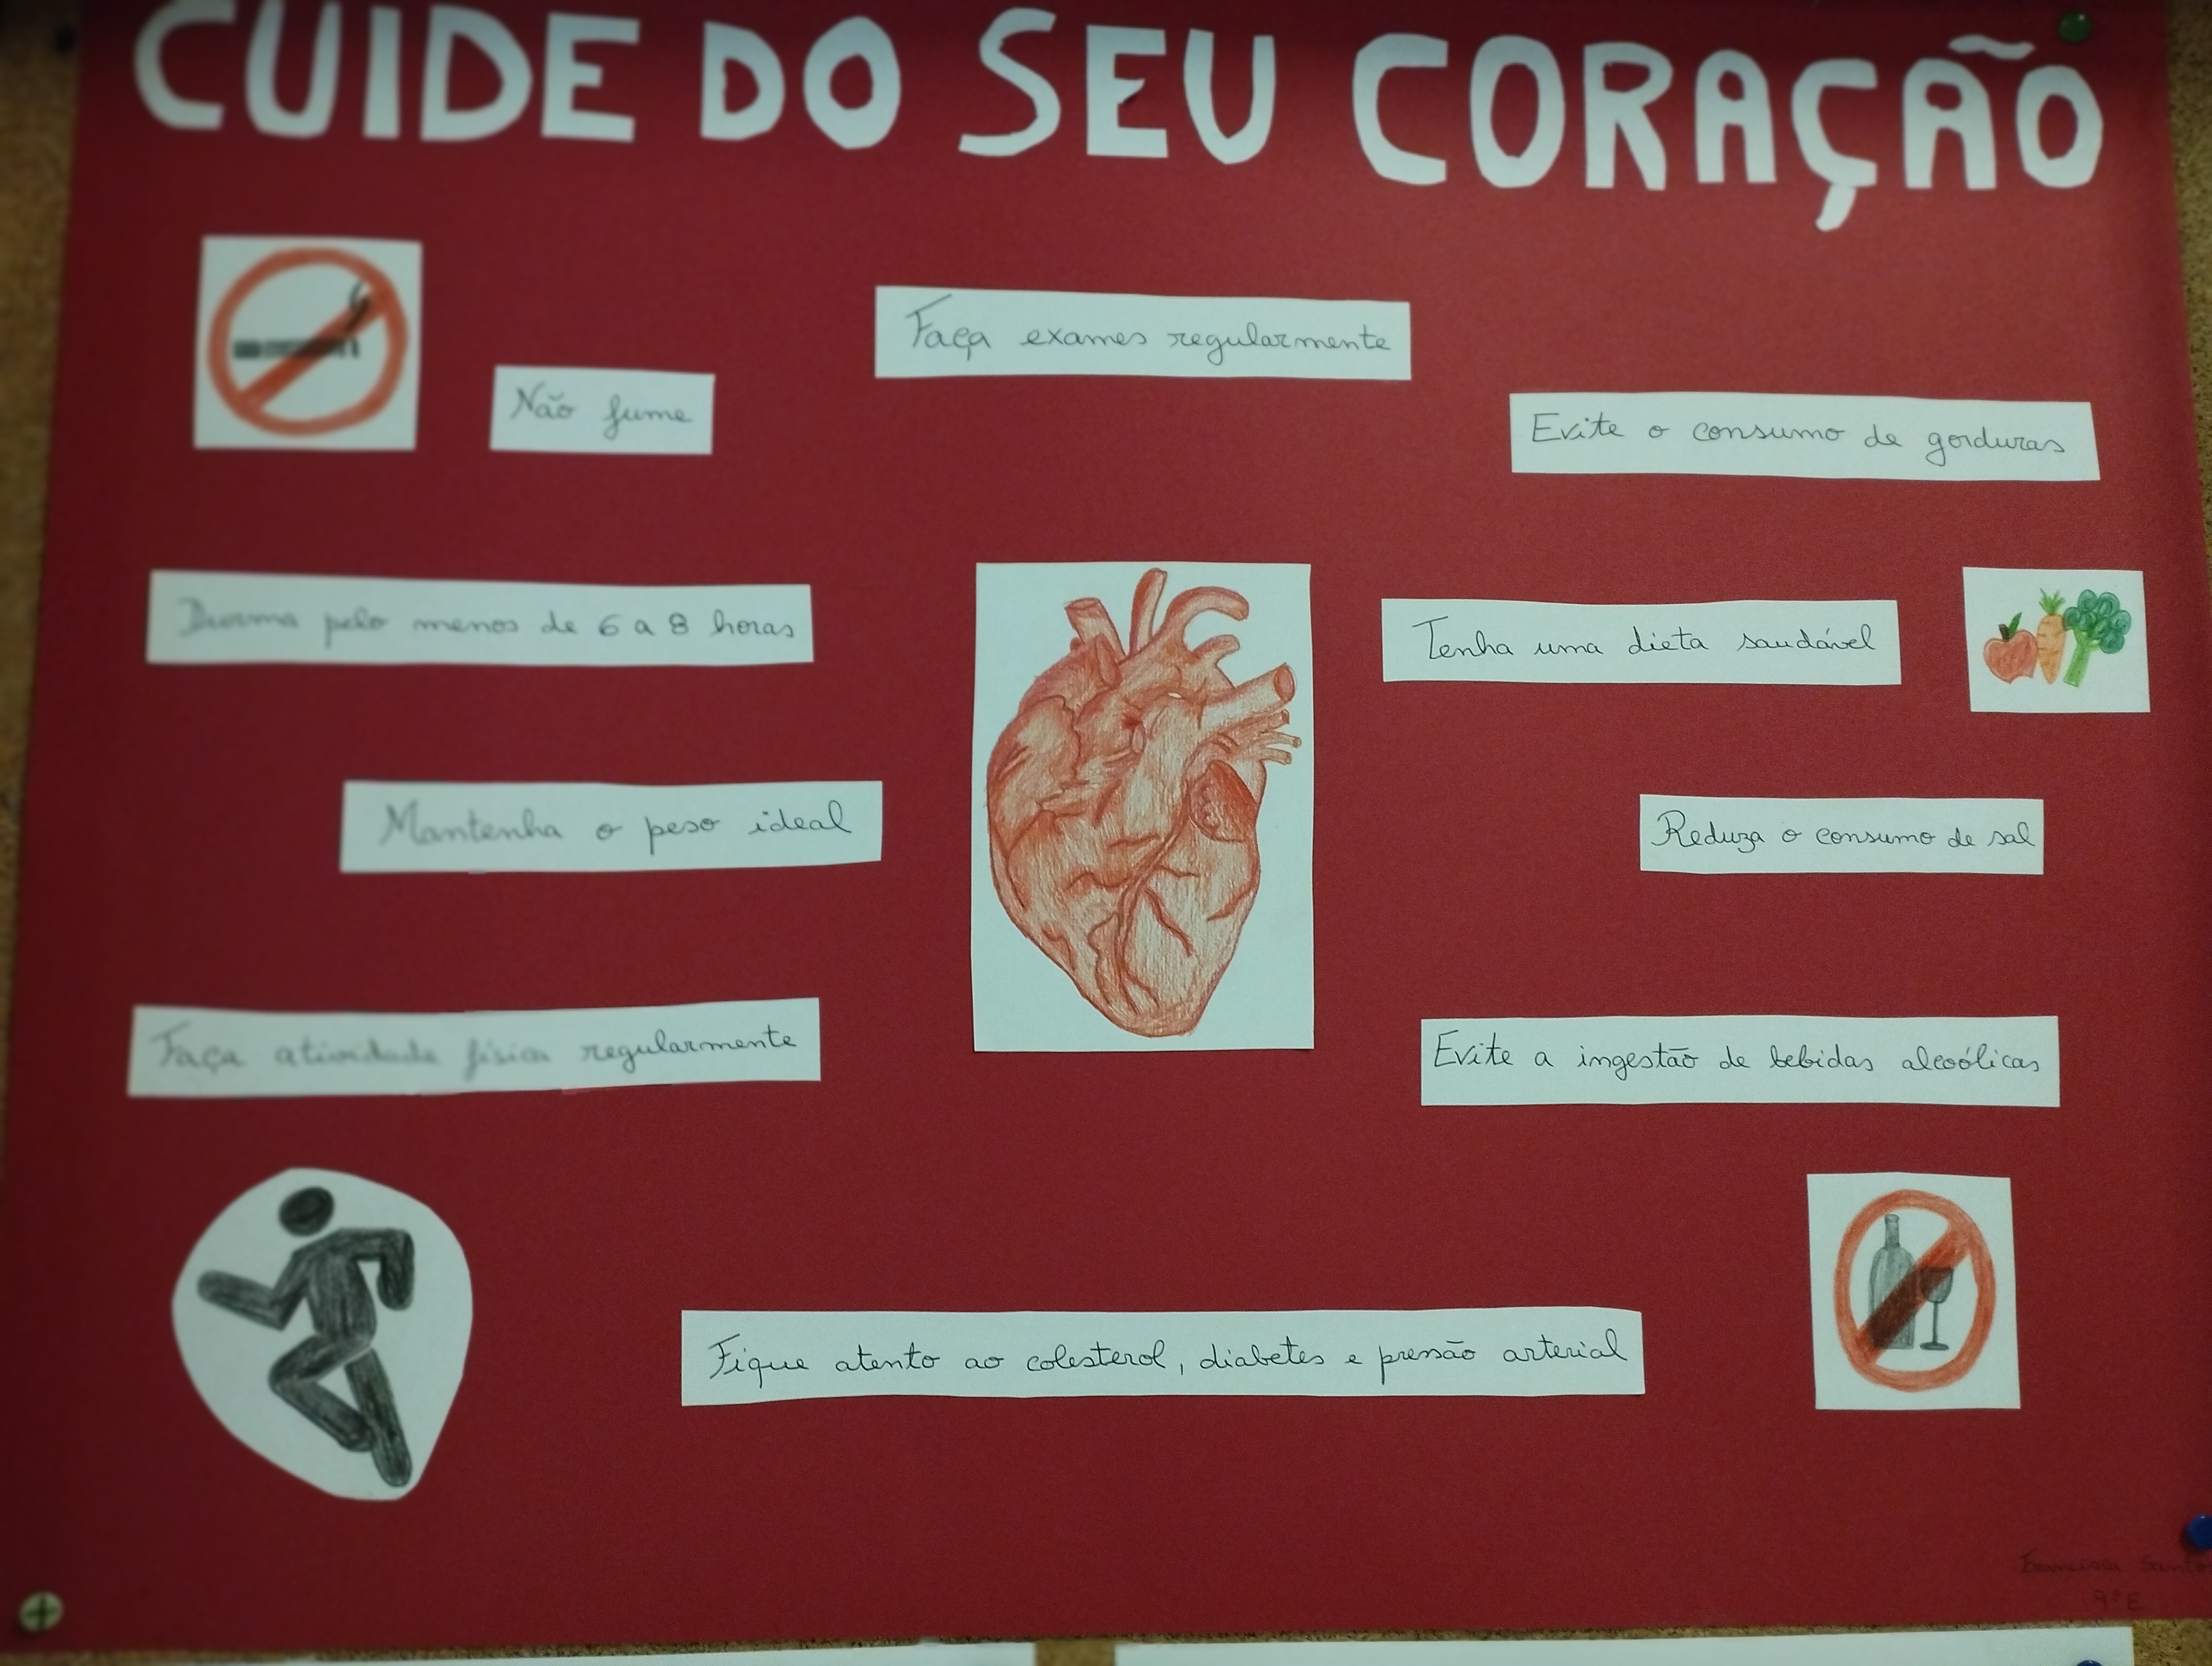 CUIDE DO SEU CORAÇÃO
Faça exames regularmente
Não fume
Evite o consumo de gorduras
Durma pelo menos de 6 a 8 horas
Tenha uma dieta saudável
Mantenha o peso ideal
Reduza o consumo de sal
Faça atividade física regularmente
Evite a ingestão de bebidas alcoólicas
Fique atento ao colesterol, diabetes e pressão arterial
9º E